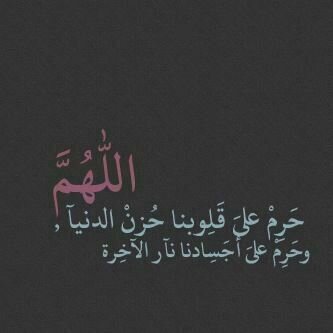 اللَّهُمَّ
حَرِمْ علىَ قَلِوبنا حُزنْ الدنيآ ,
وحَرِمْ علىَ أجَسِادنا نآر الآخِرة